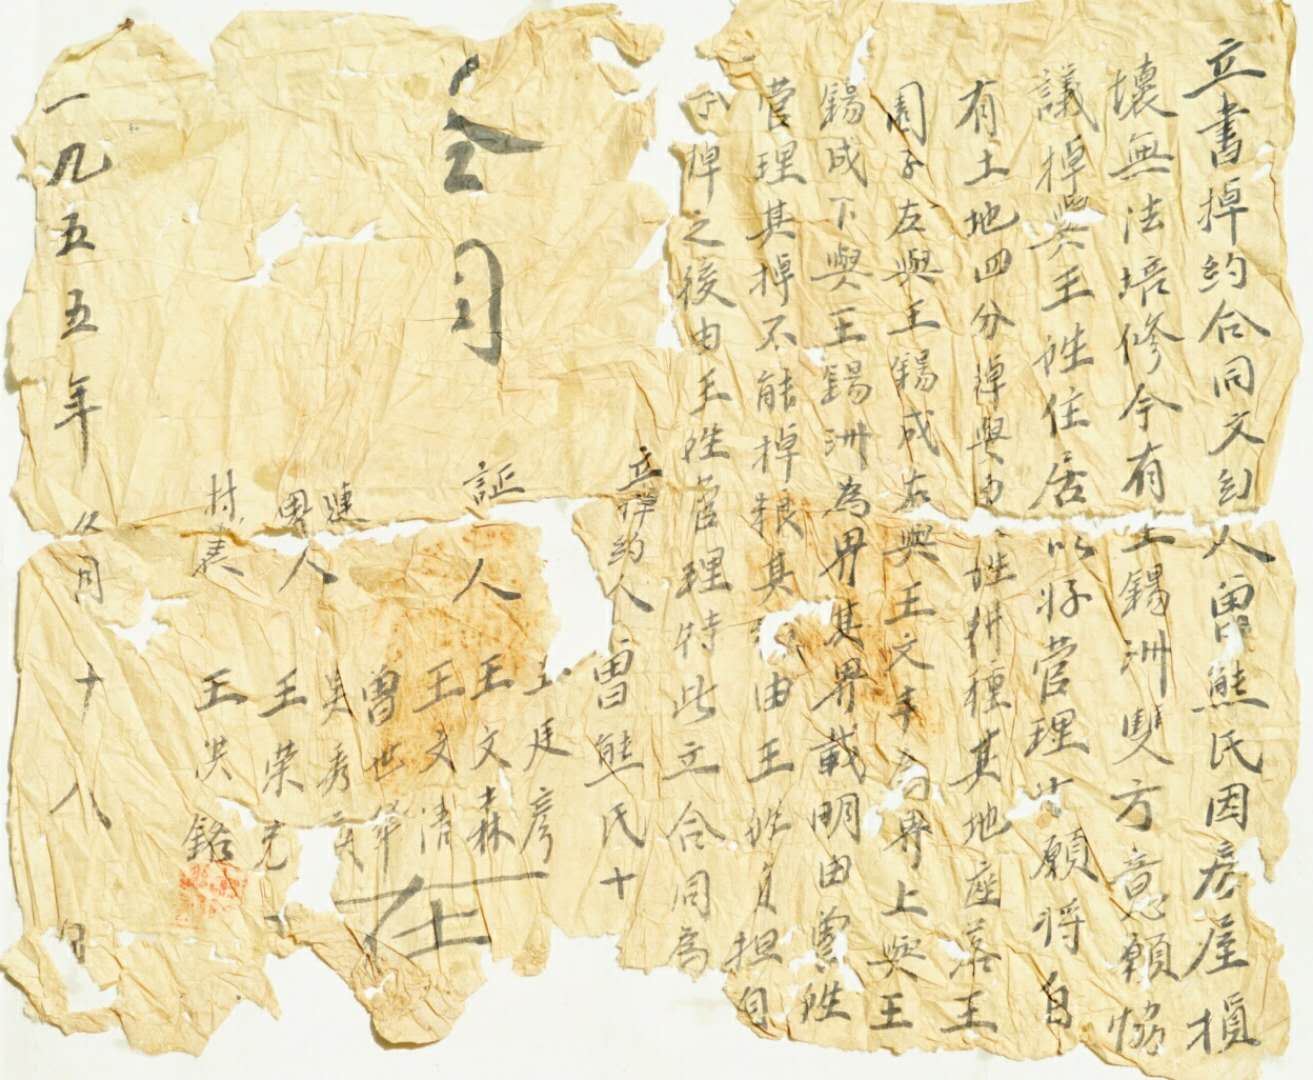 立書掉約合同文約人曾熊氏因房屋損
壞無法培修今有王錫洲雙方意願協
議掉與王姓住居以好管理 願將自
有土地四分掉與 姓耕種其地座落王
園子左與王錫成右與王文 為界上與王
錫成下與王錫洲為界其界載明由曾姓
管理其掉不能掉粮其 由王姓自担自
掉之後由王姓管理特此立合同為
立掉約人 曾熊氏十
合同
証人 王廷彦
王文森
王文清
曾世華
在
吳秀
王荣光
村長 王洪銘
一九五五年 月十八日